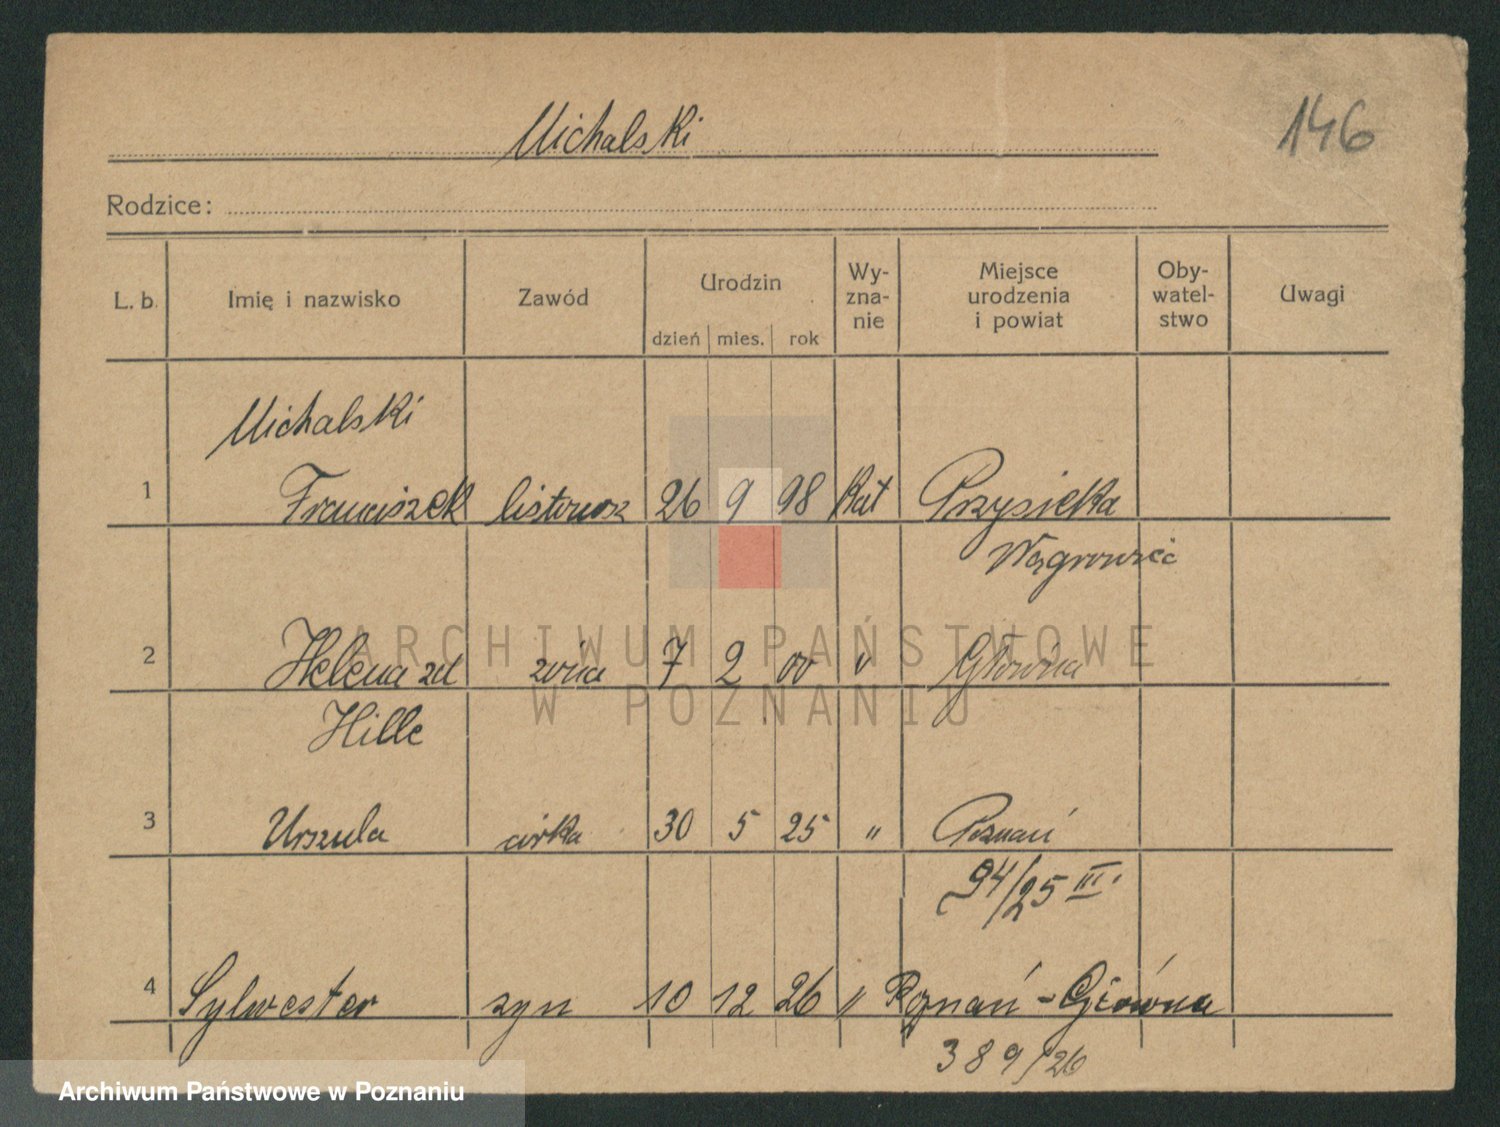 146
Michalski
Rodzice:
L. b. Imię i nazwisko Zawód Urodzin Wy-zna-nie Miejsce urodzenia i powiat Oby-watel-stwo Uwagi
dzień mies. rok
Michalski
1 Franciszek listonosz 26 9 98 Kat Przysieka
Wągrowiec
2 Helena zd żona 7 2 00 " Główna
Hille
3 Urszula córka 30 5 25 " Poznań
94/25 III.
4 Sylwester syn 10 12 26 " Poznań - Główna
389/26
ARCHIWUM PAŃSTWOWE
W POZNANIU
Archiwum Państwowe w Poznaniu